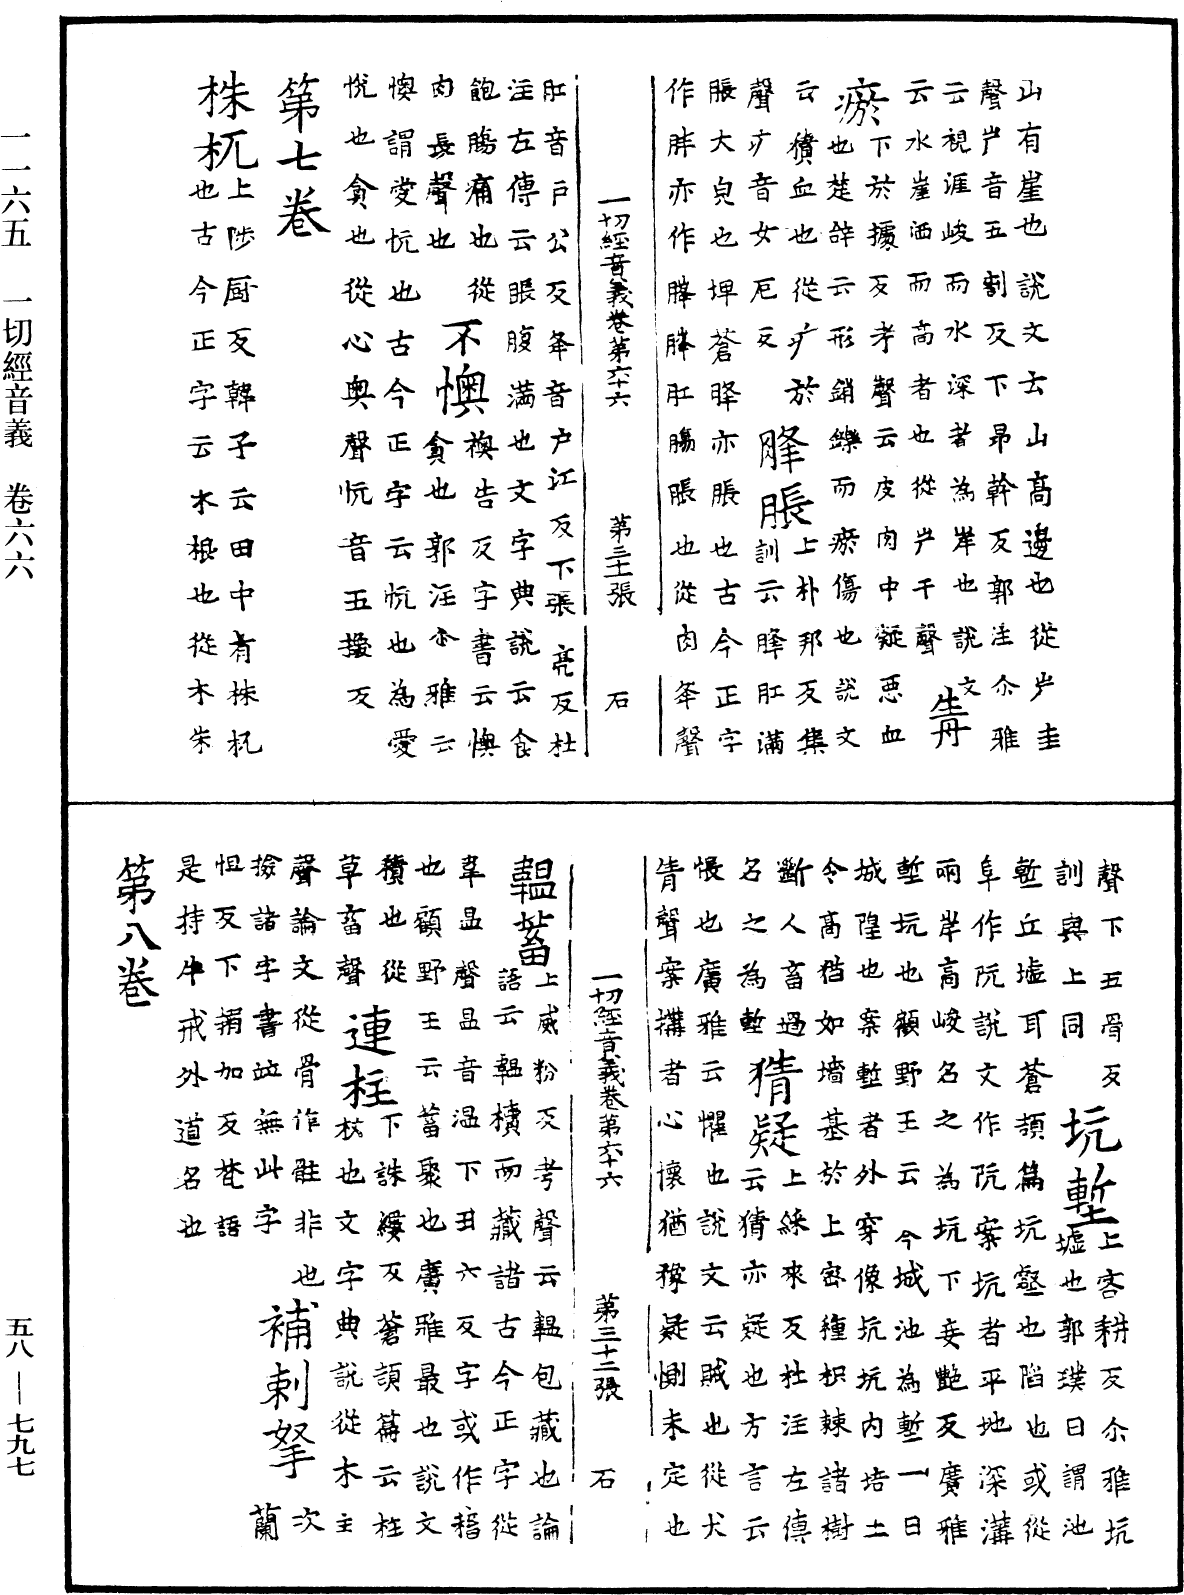 山有崖也說文云山高邊也從屵圭
聲屵音五割反下昂幹反郭注尒雅
云視涯峻而水深者為岸也說文
云水崖洒而高者也從屵干聲 𤯝
瘀下於㩀反考聲云皮肉中凝惡血
也楚辞云形銷鑠而瘀傷也說文
云積血也從疒於
聲疒音女厄反 胮脹上朴邦反集
訓云胮肛滿
脹大皃也埤蒼胮亦脹也古今正字
作胖亦作膖膖肛腸脹也從肉夆聲
一切經音義卷第六十六 第三十一張 石
肛音户公反夆音户江反下張亮反杜
注左傳云脹腹滿也文字典說云食
飽腸痛也從
肉長聲也 不懊襖告反字書云懊
貪也郭注尒雅云
懊謂愛忨也古今正字云忨也為愛
悅也貪也從心奥聲忨音五換反
第七卷
株杌上陟厨反韓子云田中有株杌
也古今正字云木根也從木朱
聲下五骨反
訓與上同 坑塹上客耕反尒雅坑
墟也郭璞曰謂池
塹丘墟耳蒼頡篇坑壑也陷也或從
阜作阬說文作阬案坑者平地深溝
兩岸高峻名之為坑下妾艷反廣雅
塹坑也顧野王云今城池為塹一曰
城隍也案塹者外穿像坑坑内培土
令高猶如墻基於上密種枳棘諸樹
斷人畜過
名之為塹 猜疑上綵來反杜注左傳
云猜亦疑也方言云
悵也廣雅云懼也說文云賊也從犬
青聲案搆者心懷猶豫疑惻未定也
一切經音義卷第六十六 第三十二張 石
韞蓄上威粉反考聲云韞包藏也論
語云韞櫝而藏諸古今正字從
韋昷聲昷音溫下丑六反字或作稸
也顧野王云蓄聚也廣雅最也說文
積也從
草畜聲 連柱下誅縷反蒼頡篇云柱
枝也文字典說從木主
聲論文從骨作骵非也
撿諸字書竝無此字 補剌拏次蘭
怛反下搦加反梵語
是持牛戒外道名也
第八卷
一一六五 一切經音義 卷六六
五八—七九七